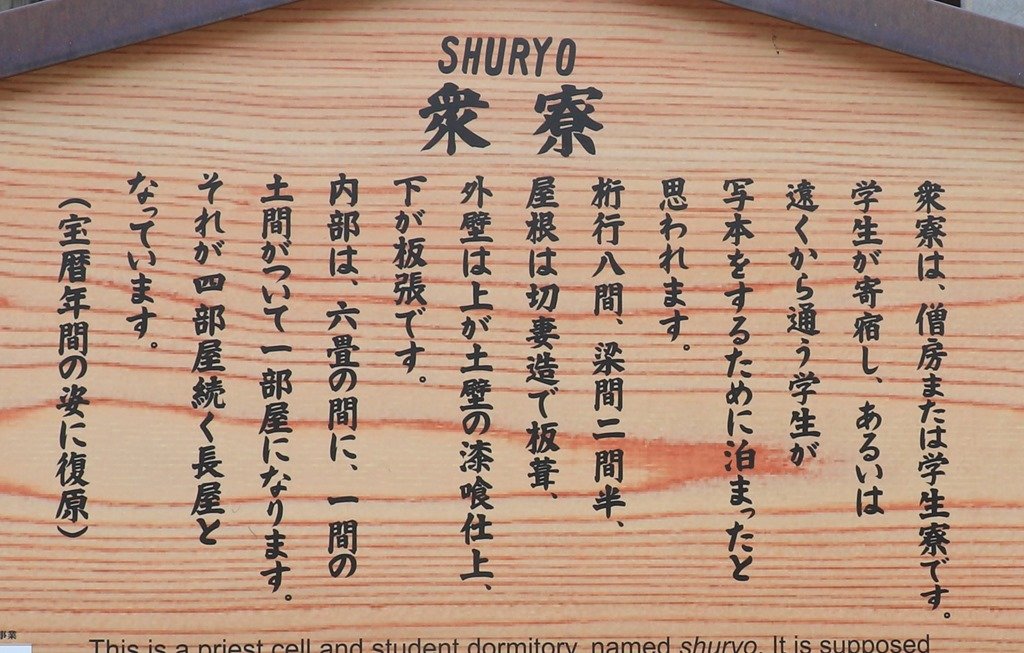 SHURYO
衆寮
衆寮は、僧房または学生寮です。
学生が寄宿し、あるいは
遠くから通う学生が
写本をするために泊まったと
思われます。
桁行八間、梁間二間半、
屋根は切妻造で板葺、
外壁は上が土壁の漆喰仕上、
下が板張です。
内部は、六畳の間に、一間の
土間がついて一部屋になります。
それが四部屋続く長屋と
なっています。
（宝暦年間の姿に復原）
事業
This is a priest cell and student dormitory, named shuryo. It is supposed